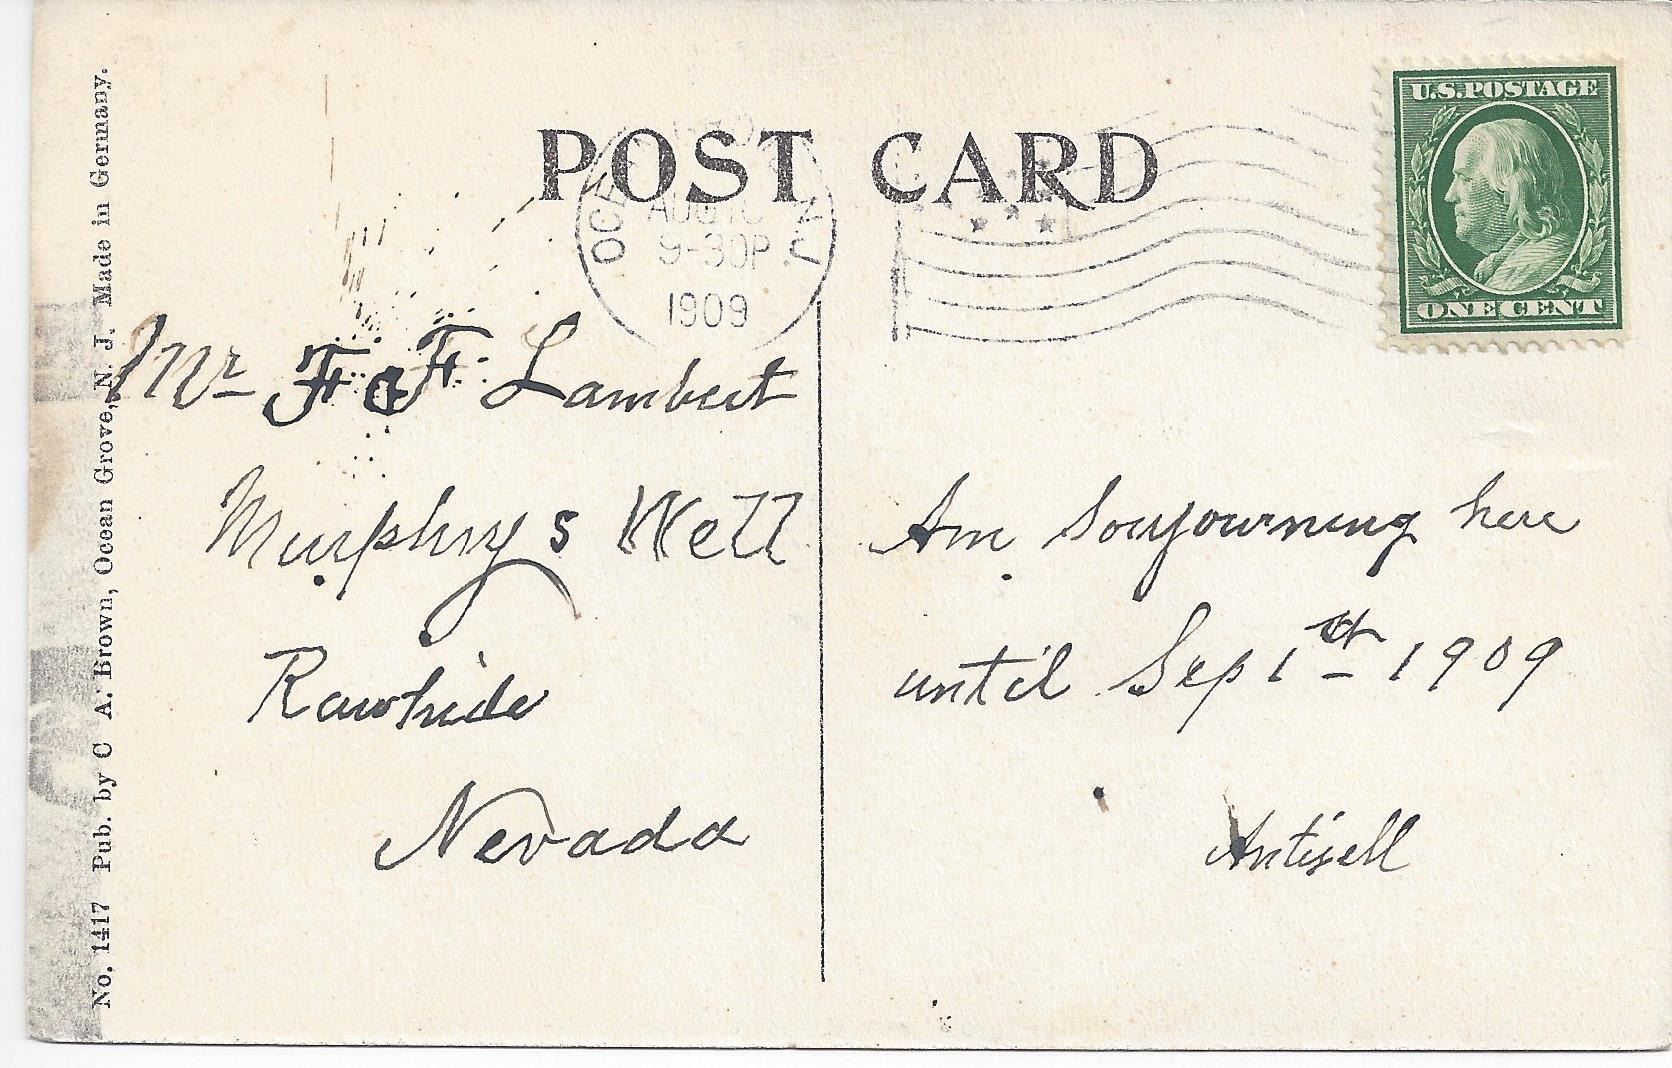 POST CARD
U.S. POSTAGE
ONE CENT
9-30P
1909
Mr F F Lambert
Murphys Well
Rawhide
Nevada
Am Soujourning here
until Sep 1st 1909
Antisell
No. 1417 Pub. by C A. Brown, Ocean Grove, N. J. Made in Germany.